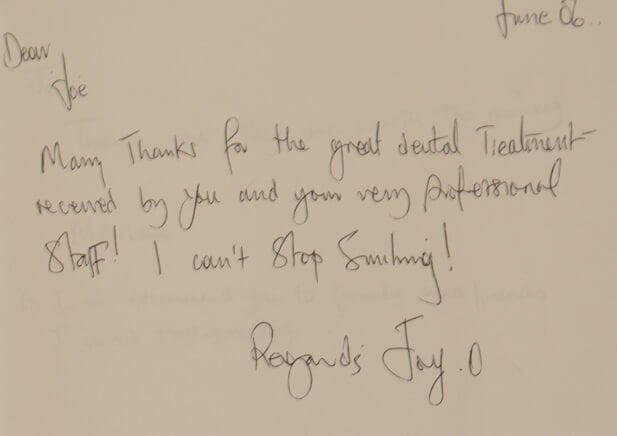 June 06..
Dear
Joe
Many Thanks for the great dental Treatment
received by you and your very professional
Staff! I can't Stop Smiling!
Regards Jay.O